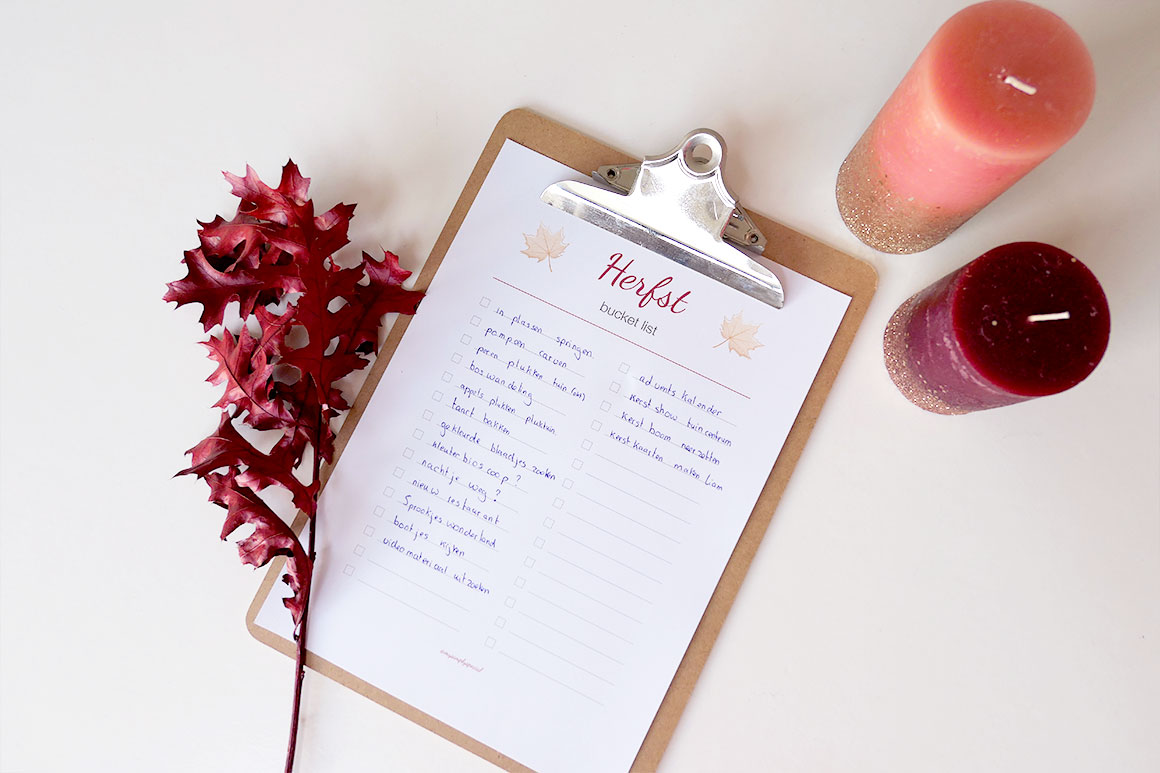 Herfst
bucket list
in plassen springen
pompoen carven
peren plukken tuin
boswandeling
appels plukken plukken
taart bakken
gekleurde blaadjes zoeken
kleuter bios coop ?
nachtje weg ?
nieuw restaurant
Sprookjes wonderland
bontjes kijken
videomateriaal uitzoeken
advents kalender
kerstshow tuincentrum
kerst boom neerzetten
kerstkaarten maken Liam